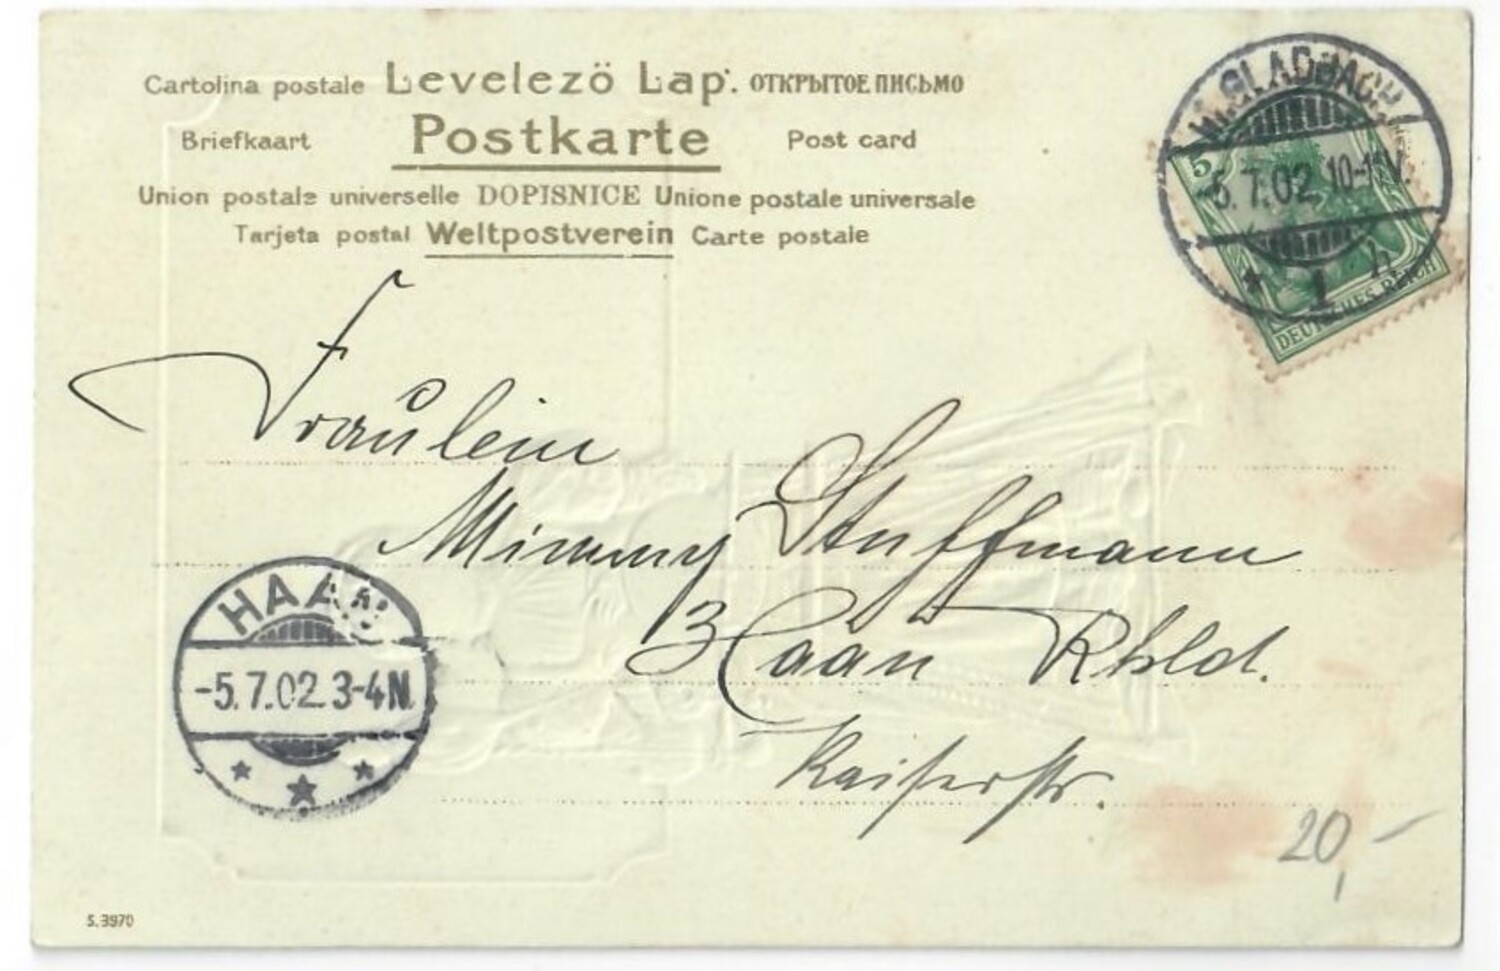 Cartolina postale Levelezö Lap. ОТКРЫТОЕ ПИСЬМО
Briefkaart Postkarte Post card
Union postale universelle DOPISNICE Unione postale universale
Tarjeta postal Weltpostverein Carte postale
M.GLADBACH
5
-5.7.02. 10-11V.
* 1 h
DEUTSCHES REICH
Fräulein
Mimmy Stuffmann
Haan Rhld.
Kaiserstr.
HAAN
-5.7.02.3-4N.
20,-
S.3970